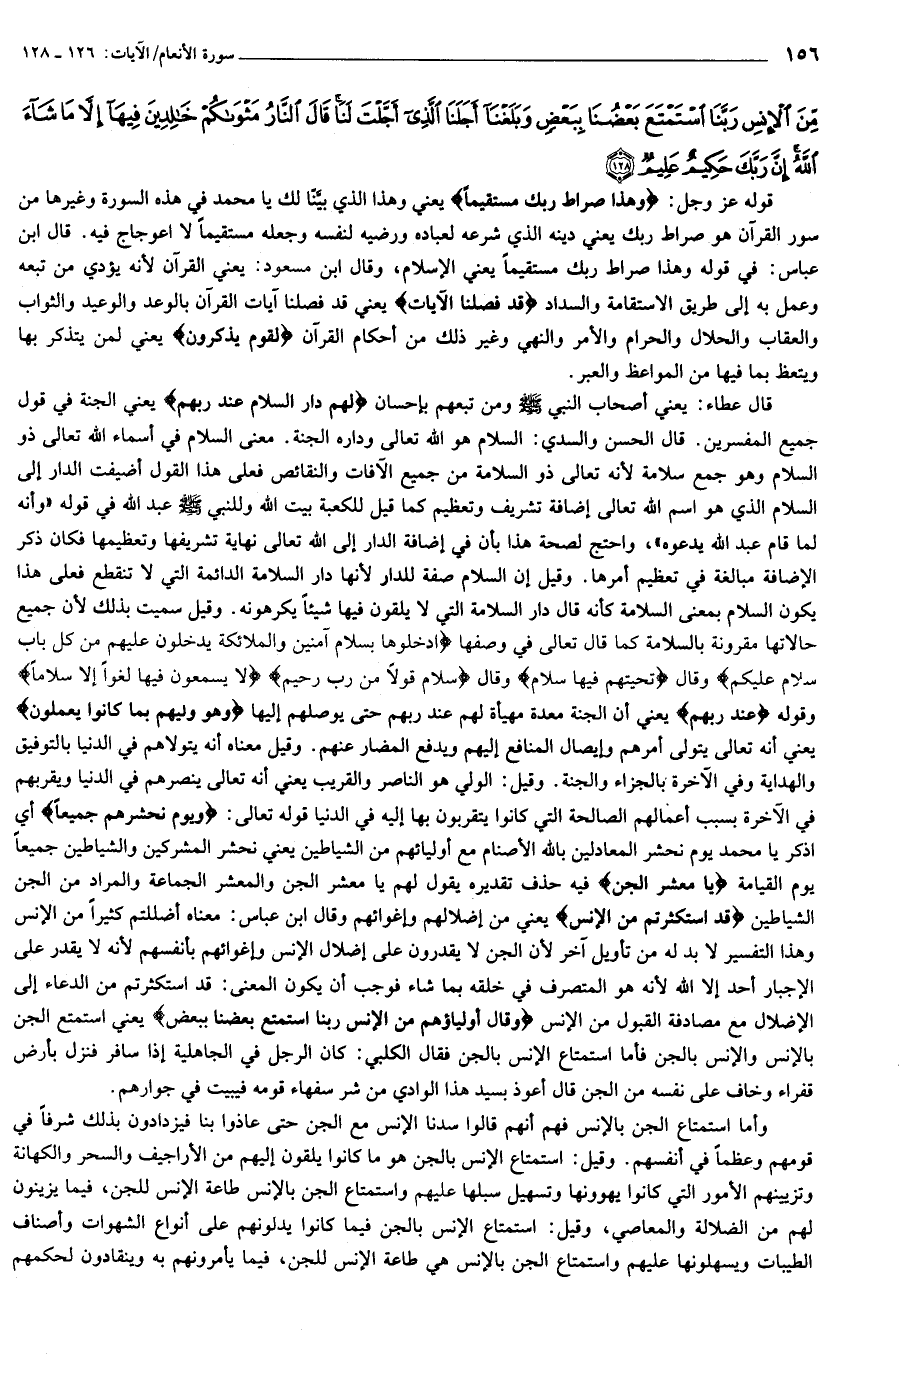 ١٥٦ سورة الأنعام/ الآيات: ١٢٦ ـ ١٢٨
مِّنَ ٱلْإِنسِ رَبَّنَا ٱسْتَمْتَعَ بَعْضُنَا بِبَعْضٍ وَبَلَغْنَآ أَجَلَنَا ٱلَّذِىٓ أَجَّلْتَ لَنَا ۚ قَالَ ٱلنَّارُ مَثْوَىٰكُمْ خَٰلِدِينَ فِيهَآ إِلَّا مَا شَآءَ
ٱللَّهُ ۗ إِنَّ رَبَّكَ حَكِيمٌ عَلِيمٌ ﴿١٢٨﴾
قوله عز وجل: ﴿وهذا صراط ربك مستقيماً﴾ يعني وهذا الذي بيَّنا لك يا محمد في هذه السورة وغيرها من
سور القرآن هو صراط ربك يعني دينه الذي شرعه لعباده ورضيه لنفسه وجعله مستقيماً لا اعوجاج فيه. قال ابن
عباس: في قوله وهذا صراط ربك مستقيماً يعني الإسلام، وقال ابن مسعود: يعني القرآن لأنه يؤدي من تبعه
وعمل به إلى طريق الاستقامة والسداد ﴿قد فصلنا الآيات﴾ يعني قد فصلنا آيات القرآن بالوعد والوعيد والثواب
والعقاب والحلال والحرام والأمر والنهي وغير ذلك من أحكام القرآن ﴿لقوم يذكرون﴾ يعني لمن يتذكر بها
ويتعظ بما فيها من المواعظ والعبر.
قال عطاء: يعني أصحاب النبي ﷺ ومن تبعهم بإحسان ﴿لهم دار السلام عند ربهم﴾ يعني الجنة في قول
جميع المفسرين. قال الحسن والسدي: السلام هو الله تعالى وداره الجنة. معنى السلام في أسماء الله تعالى ذو
السلام وهو جمع سلامة لأنه تعالى ذو السلامة من جميع الآفات والنقائص فعلى هذا القول أضيفت الدار إلى
السلام الذي هو اسم الله تعالى إضافة تشريف وتعظيم كما قيل للكعبة بيت الله وللنبي ﷺ عبد الله في قوله «وأنه
لما قام عبد الله يدعوه»، واحتج لصحة هذا بأن في إضافة الدار إلى الله تعالى نهاية تشريفها وتعظيمها فكان ذكر
الإضافة مبالغة في تعظيم أمرها. وقيل إن السلام صفة للدار لأنها دار السلامة الدائمة التي لا تنقطع فعلى هذا
يكون السلام بمعنى السلامة كأنه قال دار السلامة التي لا يلقون فيها شيئاً يكرهونه. وقيل سميت بذلك لأن جميع
حالاتها مقرونة بالسلامة كما قال تعالى في وصفها ﴿ادخلوها بسلام آمنين والملائكة يدخلون عليهم من كل باب
سلام عليكم﴾ وقال ﴿تحيتهم فيها سلام﴾ وقال ﴿سلام قولاً من رب رحيم﴾ ﴿لا يسمعون فيها لغواً إلا سلاماً﴾
وقوله ﴿عند ربهم﴾ يعني أن الجنة معدة مهيأة لهم عند ربهم حتى يوصلهم إليها ﴿وهو وليهم بما كانوا يعملون﴾
يعني أنه تعالى يتولى أمرهم وإيصال المنافع إليهم ويدفع المضار عنهم. وقيل معناه أنه يتولاهم في الدنيا بالتوفيق
والهداية وفي الآخرة بالجزاء والجنة. وقيل: الولي هو الناصر والقريب يعني أنه تعالى ينصرهم في الدنيا ويقربهم
في الآخرة بسبب أعمالهم الصالحة التي كانوا يتقربون بها إليه في الدنيا قوله تعالى: ﴿ويوم نحشرهم جميعاً﴾ أي
اذكر يا محمد يوم نحشر المعادلين بالله الأصنام مع أوليائهم من الشياطين يعني نحشر المشركين والشياطين جميعاً
يوم القيامة ﴿يا معشر الجن﴾ فيه حذف تقديره يقول لهم يا معشر الجن والمعشر الجماعة والمراد من الجن
الشياطين ﴿قد استكثرتم من الإنس﴾ يعني من إضلالهم وإغوائهم وقال ابن عباس: معناه أضللتم كثيراً من الإنس
وهذا التفسير لا بد له من تأويل آخر لأن الجن لا يقدرون على إضلال الإنس وإغوائهم بأنفسهم لأنه لا يقدر على
الإجبار أحد إلا الله لأنه هو المتصرف في خلقه بما شاء فوجب أن يكون المعنى: قد استكثرتم من الدعاء إلى
الإضلال مع مصادفة القبول من الإنس ﴿وقال أولياؤهم من الإنس ربنا استمتع بعضنا ببعض﴾ يعني استمتع الجن
بالإنس والإنس بالجن فأما استمتاع الإنس بالجن فقال الكلبي: كان الرجل في الجاهلية إذا سافر فنزل بأرض
قفراء وخاف على نفسه من الجن قال أعوذ بسيد هذا الوادي من شر سفهاء قومه فيبيت في جوارهم.
وأما استمتاع الجن بالإنس فهم أنهم قالوا سدنا الإنس مع الجن حتى عاذوا بنا فيزدادون بذلك شرفاً في
قومهم وعظماً في أنفسهم. وقيل: استمتاع الإنس بالجن هو ما كانوا يلقون إليهم من الأراجيف والسحر والكهانة
وتزيينهم الأمور التي كانوا يهوونها وتسهيل سبلها عليهم واستمتاع الجن بالإنس طاعة الإنس للجن، فيما يزينون
لهم من الضلالة والمعاصي، وقيل: استمتاع الإنس بالجن فيما كانوا يدلونهم على أنواع الشهوات وأصناف
الطيبات ويسهلونها عليهم واستمتاع الجن بالإنس هي طاعة الإنس للجن، فيما يأمرونهم به وينقادون لحكمهم